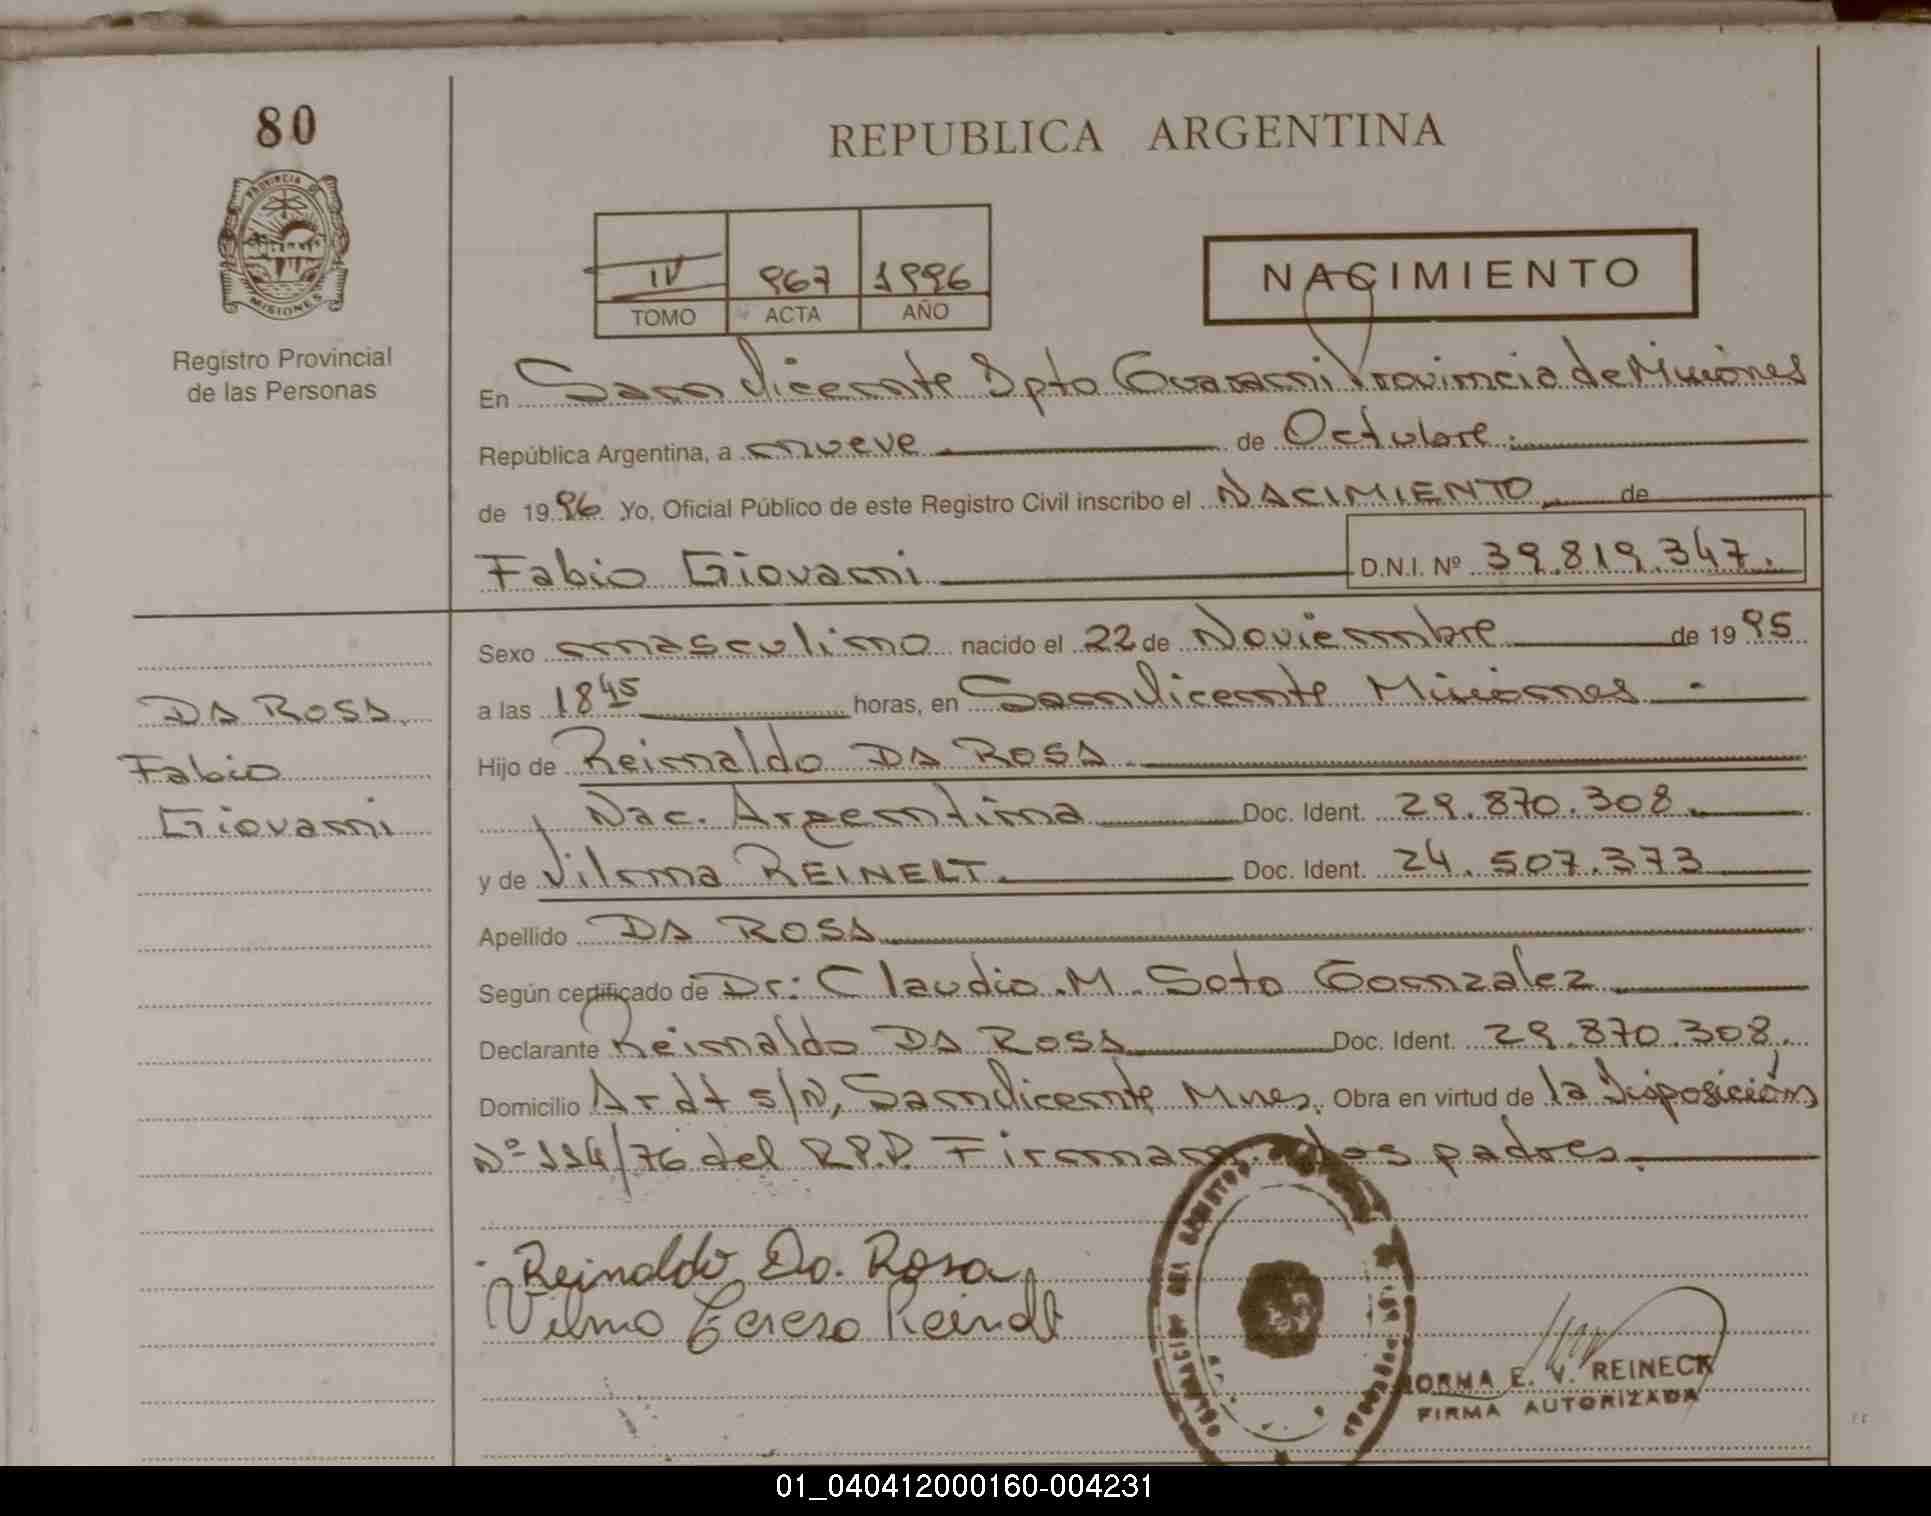 80
REPUBLICA ARGENTINA
PROVINCIA DE
MISIONES
Registro Provincial
de las Personas
IV 967 1996
TOMO ACTA AÑO
NACIMIENTO
En San Vicente Dpto Guarani Provincia de Misiones
República Argentina, a nueve de Octubre.
de 1996 Yo, Oficial Público de este Registro Civil inscribo el NACIMIENTO de
Fabio Giovani D.N.I. Nº 39.819.347.
Sexo masculino nacido el 22 de Noviembre de 1995
a las 18 45 horas, en San Vicente Misiones -
Hijo de Reinaldo DA ROSA
Nac. Argentina Doc. Ident. 29.870.308.
y de Vilma REINELT. Doc. Ident. 24.507.373
Apellido DA ROSA
Según certificado de Dr: Claudio M. Soto Gonzalez
Declarante Reinaldo DA ROSA Doc. Ident. 29.870.308.
Domicilio Ardt s/N, San Vicente Mnes. Obra en virtud de la Disposición
Nº 114/76 del R.P.P. Firman los padres.
DA ROSA
Fabio
Giovani
Reinaldo Da. Rosa
Vilma Tereza Reinelt
NORMA E. V. REINECK
FIRMA AUTORIZADA
01_040412000160-004231